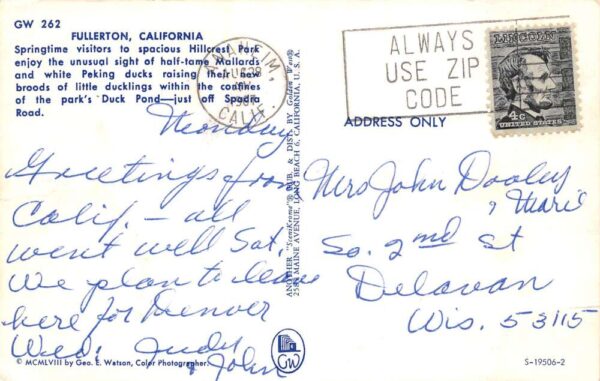 GW 262
FULLERTON, CALIFORNIA
Springtime visitors to spacious Hillcrest Park
enjoy the unusual sight of half-tame Mallards
and white Peking ducks raising their new
broods of little ducklings within the confines
of the park's Duck Pond—just off Spadra
Road.
ANAHEIM,
AUG 28
CALIF.
ALWAYS
USE ZIP
CODE
LINCOLN
4c
UNITED STATES
ADDRESS ONLY
Monday
Greetings from
Calif. - all
went well Sat.
We plan to leave
here for Denver
Wed. Judy
& John
Mrs John Dooley
& Marie
So. 2nd St
Delavan
Wis. 53115
ANOTHER "SceniKrome" PUB. & DIST. BY Golden West
MAINE AVENUE, LONG BEACH 6, CALIFORNIA, U. S. A.
GW
© MCMLVIII by Geo. E. Watson, Color Photographer
S-19506-2